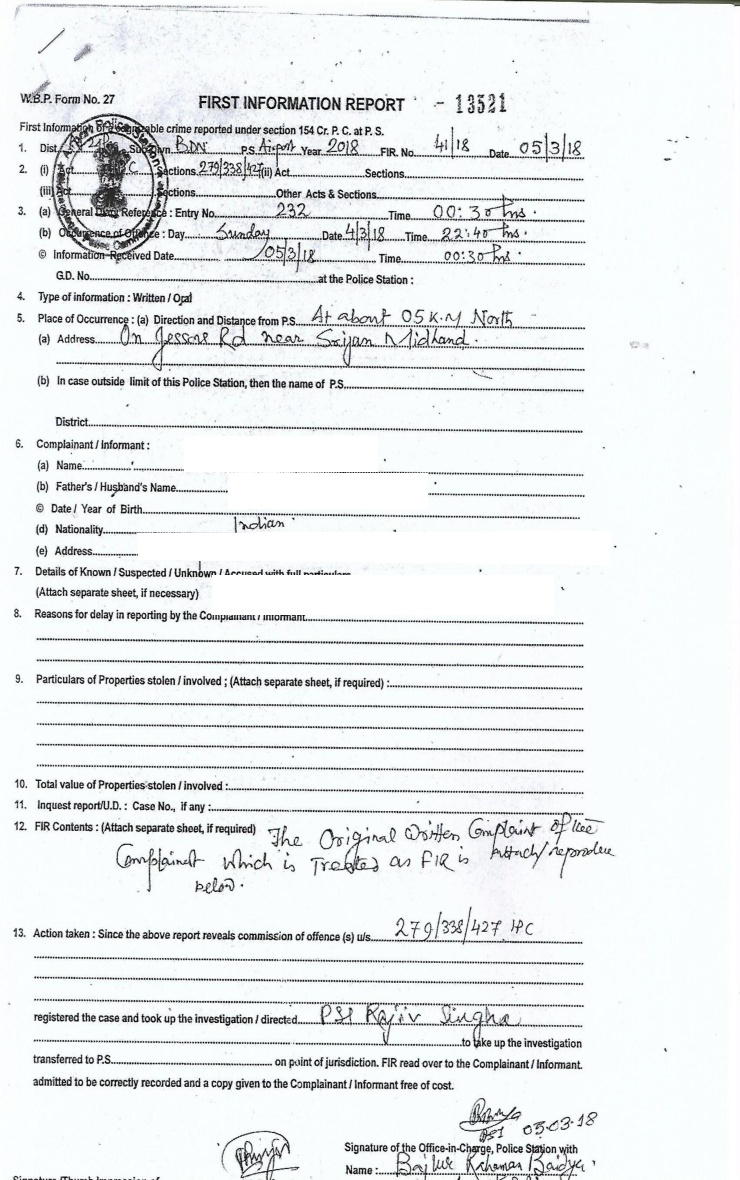 W.B.P. Form No. 27 FIRST INFORMATION REPORT - 13521
First Information of a cognizable crime reported under section 154 Cr. P. C. at P. S.
1. Dist. Sub-Divn. BDN P.S. Airport Year 2018 FIR. No. 41/18 Date 05/3/18
2. (i) Act Sections 279/338/427 (ii) Act Sections
(iii) Act Sections Other Acts & Sections
3. (a) General Diary Reference : Entry No. 232 Time 00:30 hrs.
(b) Occurrence of Offence : Day Sunday Date 4/3/18 Time 22:40 hrs.
© Information Received Date 05/3/18 Time 00:30 hrs.
G.D. No. at the Police Station :
4. Type of information : Written / Oral
5. Place of Occurrence : (a) Direction and Distance from P.S. At about 05 K.M North
(a) Address On Jessore Rd near Srijan Midland.
(b) In case outside limit of this Police Station, then the name of P.S.
District
6. Complainant / Informant :
(a) Name
(b) Father's / Husband's Name
© Date / Year of Birth
(d) Nationality Indian
(e) Address
7. Details of Known / Suspected / Unknown / Accused with full particulars
(Attach separate sheet, if necessary)
8. Reasons for delay in reporting by the Complainant / Informant
9. Particulars of Properties stolen / involved ; (Attach separate sheet, if required) :
10. Total value of Properties stolen / involved :
11. Inquest report/U.D. : Case No., if any :
12. FIR Contents : (Attach separate sheet, if required) The Original Written Complaint of the
Complainant which is Treated as FIR is Attach/reproduce
below.
13. Action taken : Since the above report reveals commission of offence (s) u/s. 279/338/427 IPC
registered the case and took up the investigation / directed PSI Rajiv Singha
to take up the investigation
transferred to P.S. on point of jurisdiction. FIR read over to the Complainant / Informant.
admitted to be correctly recorded and a copy given to the Complainant / Informant free of cost.
05-03-18
Signature of the Office-in-Charge, Police Station with
Name : Baidya